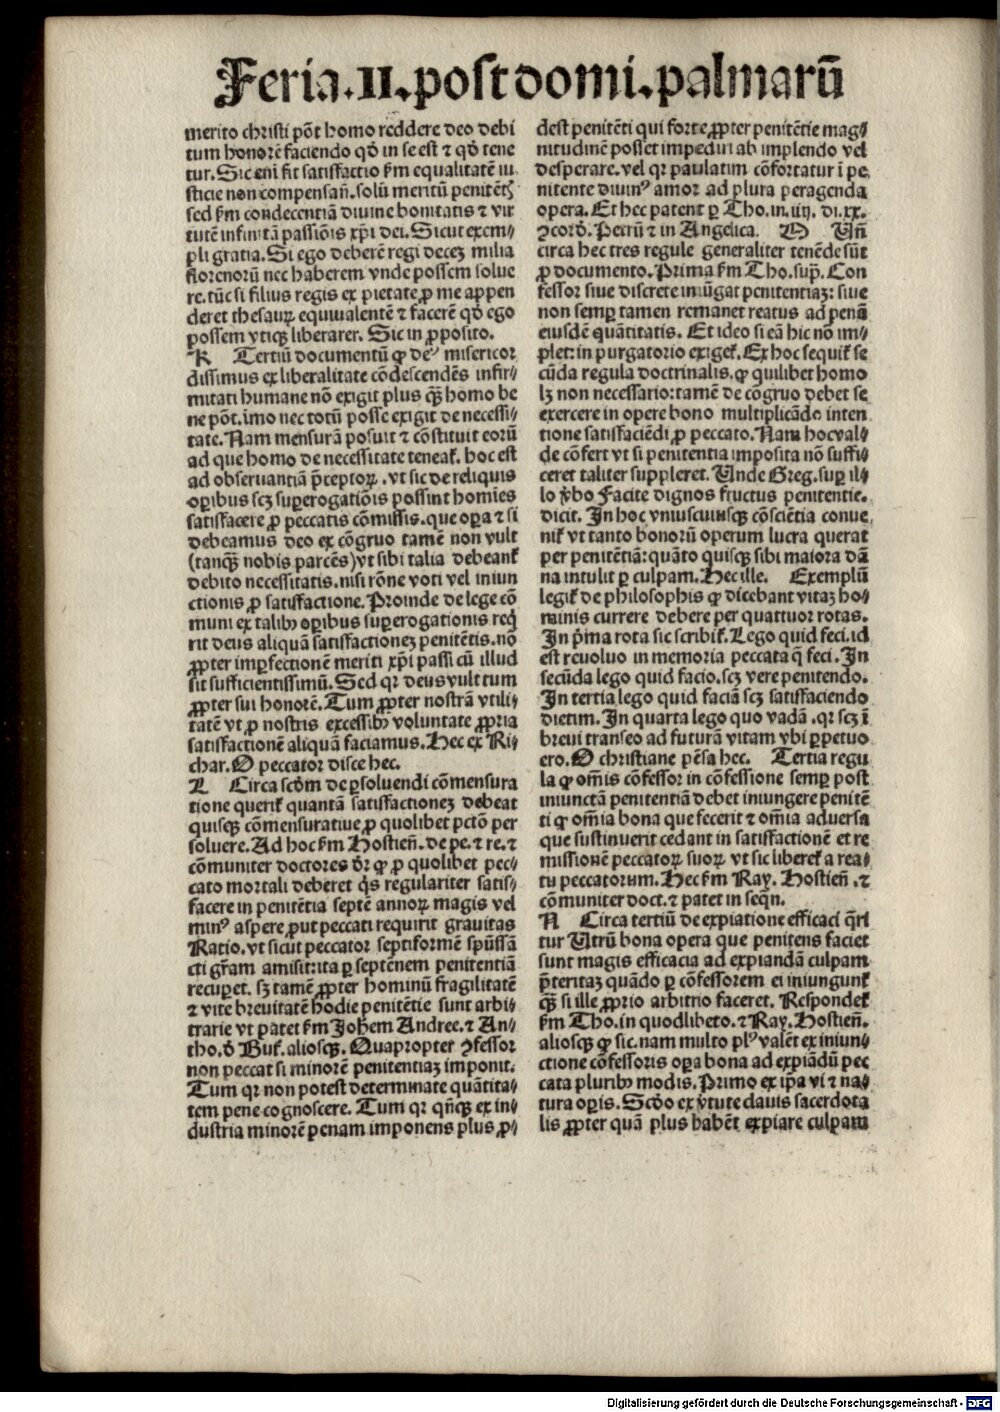 Feria.II.post domi.palmarū
merito christi pōt homo reddere deo debi
tum honorē faciendo qđ in se est ⁊ qđ tene
tur. Sic eni fit satisfactio ẜm equalitatē iu
sticie non compensan̄. solū meritū penitētꝭ
sed ẜm condecentiā diuine bonitatis ⁊ vir
tutē infinitā passiōis xp̄i dei. Sicut exem⸗
pli gratia. Si ego deberē regi decez milia
florenorū nec haberem vnde possem solue
re. tūc si filius regis ex pietate ꝓ me appen
deret thesaurꝝ equiualentē ⁊ facerē qđ ego
possem vtiqꝫ liberarer. Sic in ꝓposito.
K Tertiū documentū ꝙ deꝰ misericor
dissimus ex liberalitate cōdescendēs infir⸗
mitati humane nō exigit plus qꝫ homo be
ne pōt. imo nec totū posse exigit de necessi⸗
tate. Nam mensurā posuit ⁊ cōstituit eorū
ad que homo de necessitate teneat̄. hoc est
ad obseruantiā p̄ceptoꝝ. vt sic de reliquis
oꝑibus scꝫ suꝑerogatiōis possint homīes
satisfacere ꝓ peccatis cōmissis. que oꝑa ⁊ si
debeamus deo ex cōgruo tamē non vult
(tanqꝫ nobis parcēs) vt sibi talia debeant̄
debito necessitatis. nisi rōne voti vel iniun
ctionis ꝓ satisfactione. Proinde de lege cō
muni ex talibꝫ oꝑibus suꝑerogationis reqͥ
rit deus aliquā satisfactionez penitētis. nō
ꝓpter imꝑfectionē meriti xp̄i passi cū illud
sit sufficientissimū. Sed qꝛ deus vult tum
ꝓpter sui honorē. Tum ꝓpter nostrā vtili⸗
tatē vt ꝓ nostris excessibꝫ voluntate ꝓpria
satisfactionē aliquā faciamus. Hec ex Ri⸗
char. O peccator disce hec.
L Circa scđm de ꝑsoluendi cōmensura
tione querit̄ quantā satisfactionez debeat
quisqꝫ cōmensuratiue ꝓ quolibet pctō per
soluere. Ad hoc ẜm Hostien̄. de pe. ⁊ re. ⁊
cōmuniter doctores dr̄ ꝙ ꝓ quolibet pec⸗
cato mortali deberet qͥs regulariter satis⸗
facere in penitētia septē annoꝝ magis vel
minꝰ aspere ꝓut peccati requirit grauitas
Ratio. vt sicut peccator septiformē spūssā
cti gr̄am amisit: ita ꝑ septēnem penitentiā
recuꝑet. sꝫ tamē ꝓpter hominū fragilitatē
⁊ vite breuitatē hodie penitētie sunt arbi⸗
trarie vt patet ẜm Johēm Andree. ⁊ An⸗
tho. đ But̄. aliosqꝫ. Quapropter ꝯfessor
non peccat si minorē penitentiaz imponit.
Tum qꝛ non potest determinate quātita⸗
tem pene cognoscere. Tum qꝛ qn̄qꝫ ex in⸗
dustria minorē penam imponens plus ꝓ⸗
dest penitēti qui forte ꝓpter penitētie mag⸗
nitudinē posset impediri ab implendo vel
desperare. vel qꝛ paulatim cōfortatur ī pe
nitente diuinꝰ amor ad plura peragenda
opera. Et hec patent ꝑ Tho. in. iiij. di. xx.
ꝯcorđ. Petrū ⁊ in Angelica. M Un̄
circa hec tres regule generaliter tenēde sūt
ꝓ documento. Prima ẜm Tho. sup̄. Con
fessor siue discrete iniūgat penitentiaz: siue
non semꝑ tamen remanet reatus ad penā
eiusdē quātitatis. Et ideo si eā hic nō im⸗
plet: in purgatorio exiget̄. Ex hoc sequit̄ se
cūda regula doctrinalis. ꝙ quilibet homo
lꝫ non necessario: tamē de cōgruo debet se
exercere in opere bono multiplicādo inten
tione satisfaciēdi ꝓ peccato. Nam hoc val⸗
de cōfert vt si penitentia imposita nō suffi⸗
ceret taliter suppleret. Unde Greg. suꝑ il⸗
lo v̄bo Facite dignos fructus penitentie.
dicit. In hoc vniuscuiusqꝫ cōsciētia conue
nit̄ vt tanto bonorū operum lucra querat
per penitētiā: quāto quisqꝫ sibi maiora dā
na intulit ꝑ culpam. Hec ille. Exemplū
legit̄ de philosophis ꝙ dicebant vitaz ho⸗
minis currere debere per quattuor rotas.
In p̄ma rota sic scribit̄. Lego quid feci. id
est reuoluo in memoria peccata q̄ feci. In
secūda lego quid facio. scꝫ vere penitendo.
In tertia lego quid faciā scꝫ satisfaciendo
dietim. In quarta lego quo vadā. qꝛ scꝫ ī
breui transeo ad futurā vitam vbi ꝑpetuo
ero. O christiane pēsa hec. Tertia regu
la ꝙ om̄is cōfessor in cōfessione semꝑ post
iniunctā penitentiā debet iniungere penitē
ti ꝙ om̄ia bona que fecerit ⁊ om̄ia aduersa
que sustinuerit cedant in satisfactionē et re
missionē peccatoꝝ suoꝝ vt sic liberet̄ a rea⸗
tu peccatorum. Hec ẜm Ray. Hostien̄. ⁊
cōmuniter doct. ⁊ patet in seqn̄.
N Circa tertiū de expiatione efficaci q̄ri
tur Utrū bona opera que penitens faciet
sunt magis efficacia ad expiandā culpam
p̄teritaꝫ quādo ꝑ cōfessorem ei iniungunt̄
qꝫ si ille ꝓprio arbitrio faceret. Respondet̄
ẜm Tho. in quodlibeto. ⁊ Ray. Hostien̄.
aliosqꝫ ꝙ sic. nam multo plꝰ valēt ex iniun⸗
ctione cōfessoris oꝑa bona ad expiādū pec
cata pluribꝫ modis. Primo ex ip̄a vi ⁊ na⸗
tura oꝑis. Scđo ex v̄tute clauis sacerdota
lis ꝓpter quā plus habēt expiare culpam
Digitalisierung gefördert durch die Deutsche Forschungsgemeinschaft - DFG